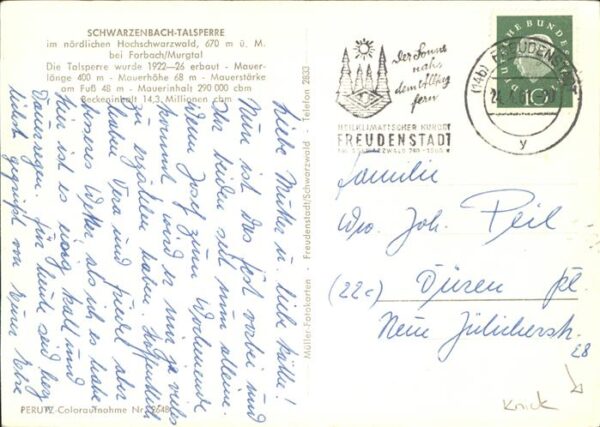 SCHWARZENBACH-TALSPERRE
im nördlichen Hochschwarzwald, 670 m ü. M.
bei Forbach/Murgtal
Die Talsperre wurde 1922—26 erbaut - Mauer-
länge 400 m - Mauerhöhe 68 m - Mauerstärke
am Fuß 48 m - Mauerinhalt 290 000 cbm
Beckeninhalt 14,3 Millionen cbm
Liebe Mutter u. liebe Käthe!
Nun ist das Fest vorbei und
Ihr beiden seid nun alleine.
Wenn Josef zum Wochenende
kommt wird er mir ja vieles
zu erzählen haben. Hoffentlich
hatten Vera und Friedel aber
besseres Wetter als ich es habe
Hier ist es eisig kalt und
Dauerregen. Für heute seid herz
lichst gegrüßt von
PERUTZ-Coloraufnahme Nr.
Müller-Fotokarten - Freudenstadt/Schwarzwald - Telefon 2833
Der Sonne
nah
dem Alltag
fern
HEILKLIMATISCHER KURORT
FREUDENSTADT
(14b) FREUDENSTADT
y
DEUTSCHE BUNDESPOST
10
Familie
Wwe. Joh. Peil
(22c) Düren
Neue Jülicherstr.
28
Knick